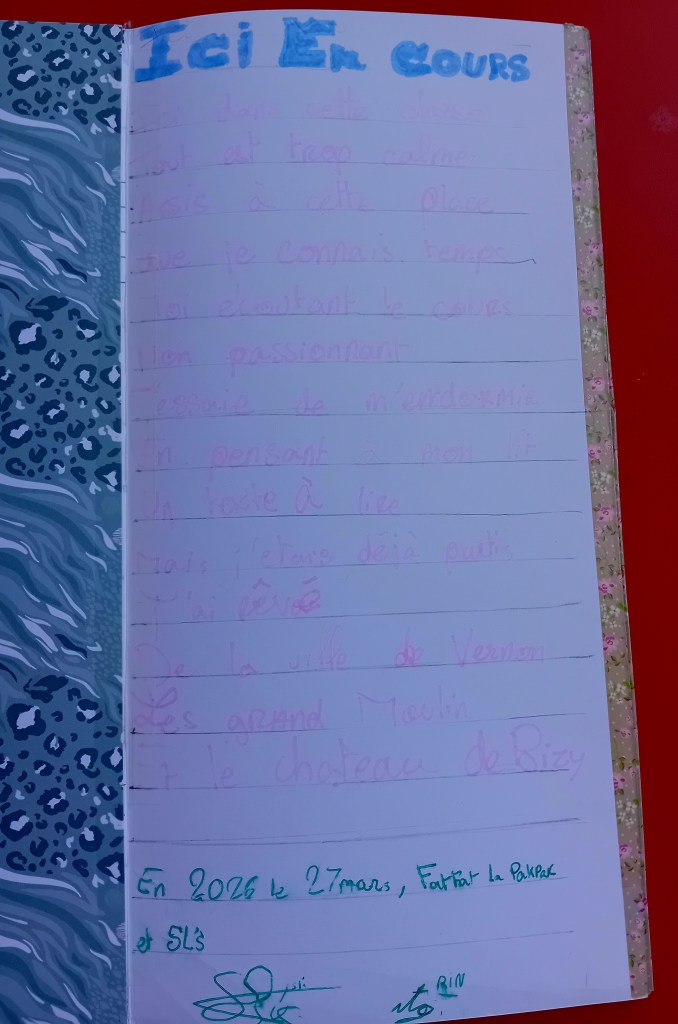 Ici En cours
dans cette classe
Tout est trop calme
Assis à cette place
Que je connais temps
Moi écoutant le cours
Non passionnant
J'essaie de m'endormir
En pensant a mon lit
Un texte à lire
Mais j'etais déjà partis
J'ai rêvé
De la ville de Vernon
Les grand Moulin
Et le chateau de Bizy
En 2026 le 27 mars, FatFat la PakPak
et SL's
BIN